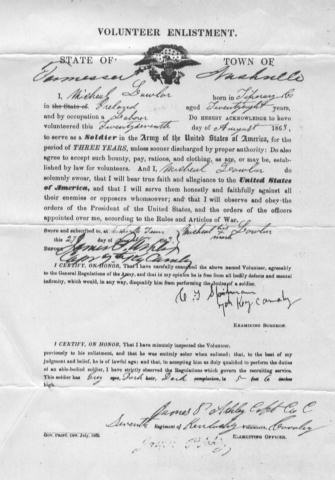 VOLUNTEER ENLISTMENT.
STATE OF TOWN OF
Tennessee Nashville
I, Micheal Lawlor born in Tiperary Co
in the State of Ireland aged Twentyeight years,
and by occupation a Labour DO HEREBY ACKNOWLEDGE to have
volunteered this Twentyseventh day of August 1863,
to serve as a Soldier in the Army of the United States of America, for the
period of THREE YEARS, unless sooner discharged by proper authority: Do also
agree to accept such bounty, pay, rations, and clothing, as are, or may be, estab-
lished by law for volunteers. And I, Micheal Lawlor do
solemnly swear, that I will bear true faith and allegiance to the United States
of America, and that I will serve them honestly and faithfully against all
their enemies or opposers whomsoever; and that I will observe and obey the
orders of the President of the United States, and the orders of the officers
appointed over me, according to the Rules and Articles of War.
Sworn and subscribed to, at Nashville Tenn
this 27 day of
Micheal his Lawlor
mark
BEFORE
I CERTIFY, ON HONOR, That I have carefully examined the above named Volunteer, agreeably
to the General Regulations of the Army, and that in my opinion he is free from all bodily defects and mental
infirmity, which would, in any way, disqualify him from performing the duties of a soldier.
7th Key. Cavalry
EXAMINING SURGEON.
I CERTIFY, ON HONOR, That I have minutely inspected the Volunteer,
previously to his enlistment, and that he was entirely sober when enlisted; that, to the best of my
judgment and belief, he is of lawful age; and that, in accepting him as duly qualified to perform the duties
of an able-bodied soldier, I have strictly observed the Regulations which govern the recruiting service.
This soldier has Grey eyes, Dark hair, Dark complexion, is 5 feet 6 inches
high.
James P. Ashby Capt Co C
Seventh Regiment of Kentucky Cavalry
GOV. PRINT. OFF. July, 1862. RECRUITING OFFICER.